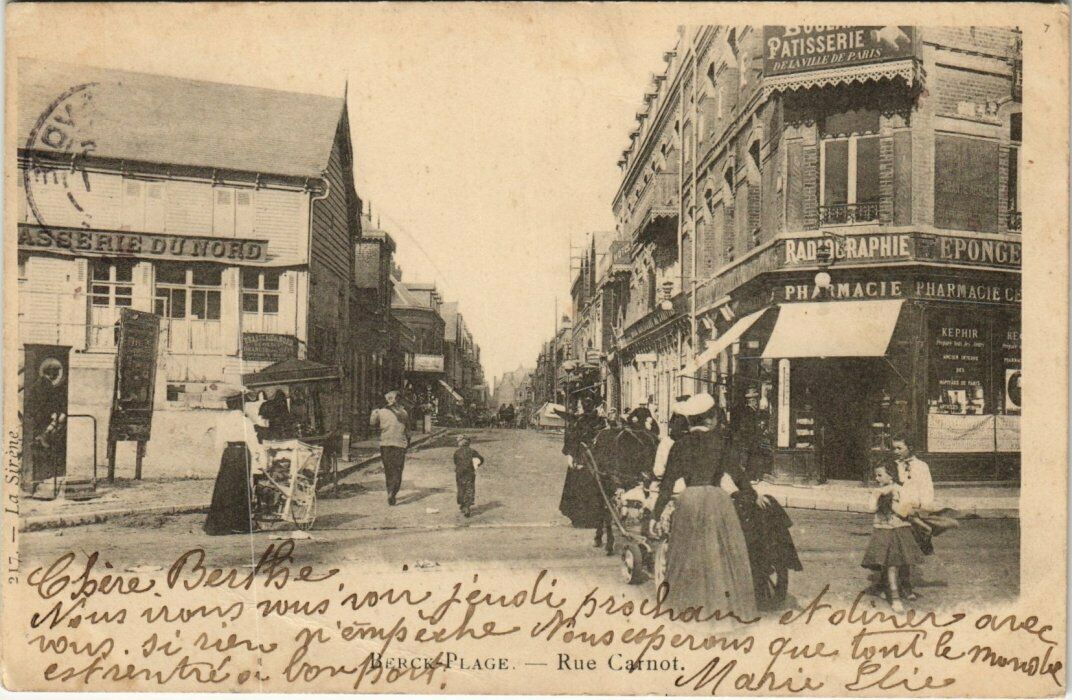 PATISSERIE
DE LA VILLE DE PARIS
ASSERIE DU NORD
RADIOGRAPHIE
EPONGE
PHARMACIE
PHARMACIE CE
KEPHIR
217. — La Sirène
Chère Berthe
Nous irons vous voir jeudi prochain et diner avec
vous. si rien n'empêche Nous esperons que tout le monde
est rentré a bon port.
Marie Elie
BERCK-PLAGE. — Rue Carnot.